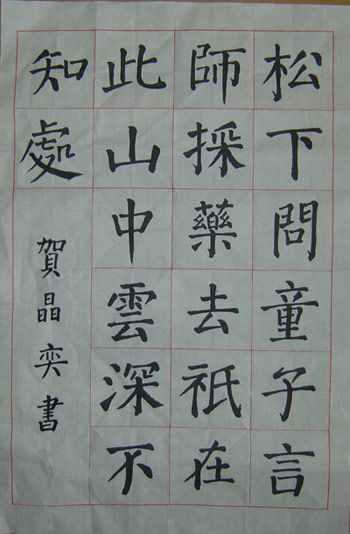 松下問童子言
師採藥去祇在
此山中雲深不
知處
賀晶奕書